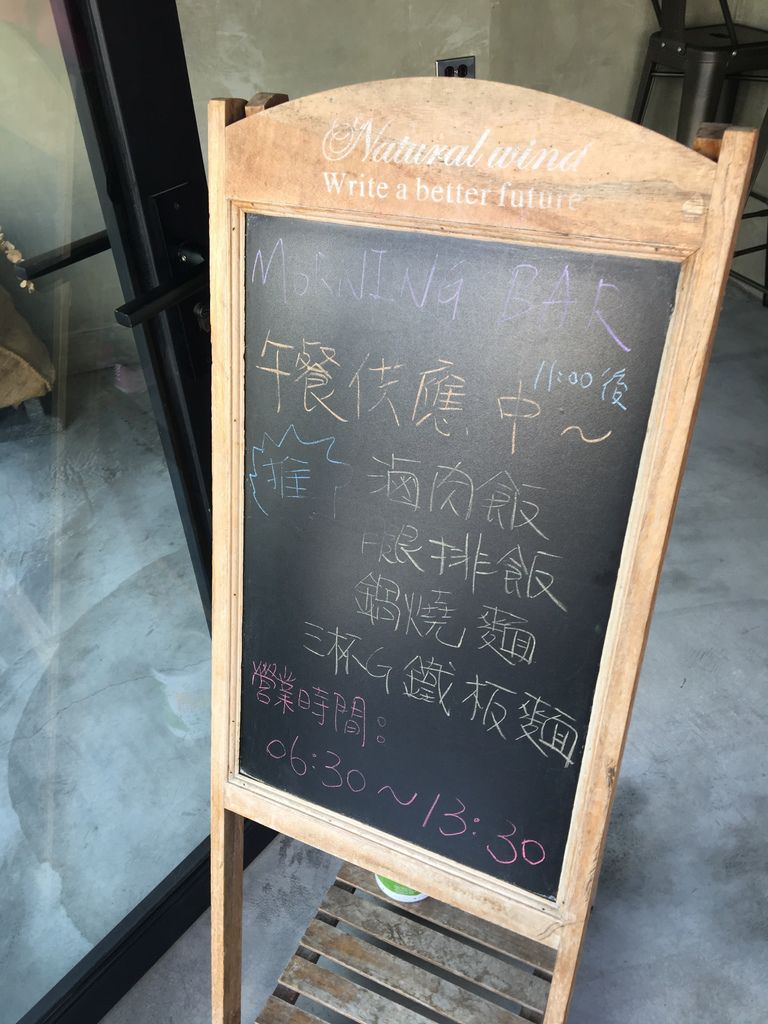 Natural wind
Write a better future
MORNING BAR
11:00後
午餐供應中～
推 滷肉飯
腿排飯
鍋燒麵
三杯G鐵板麵
營業時間：
06:30～13:30